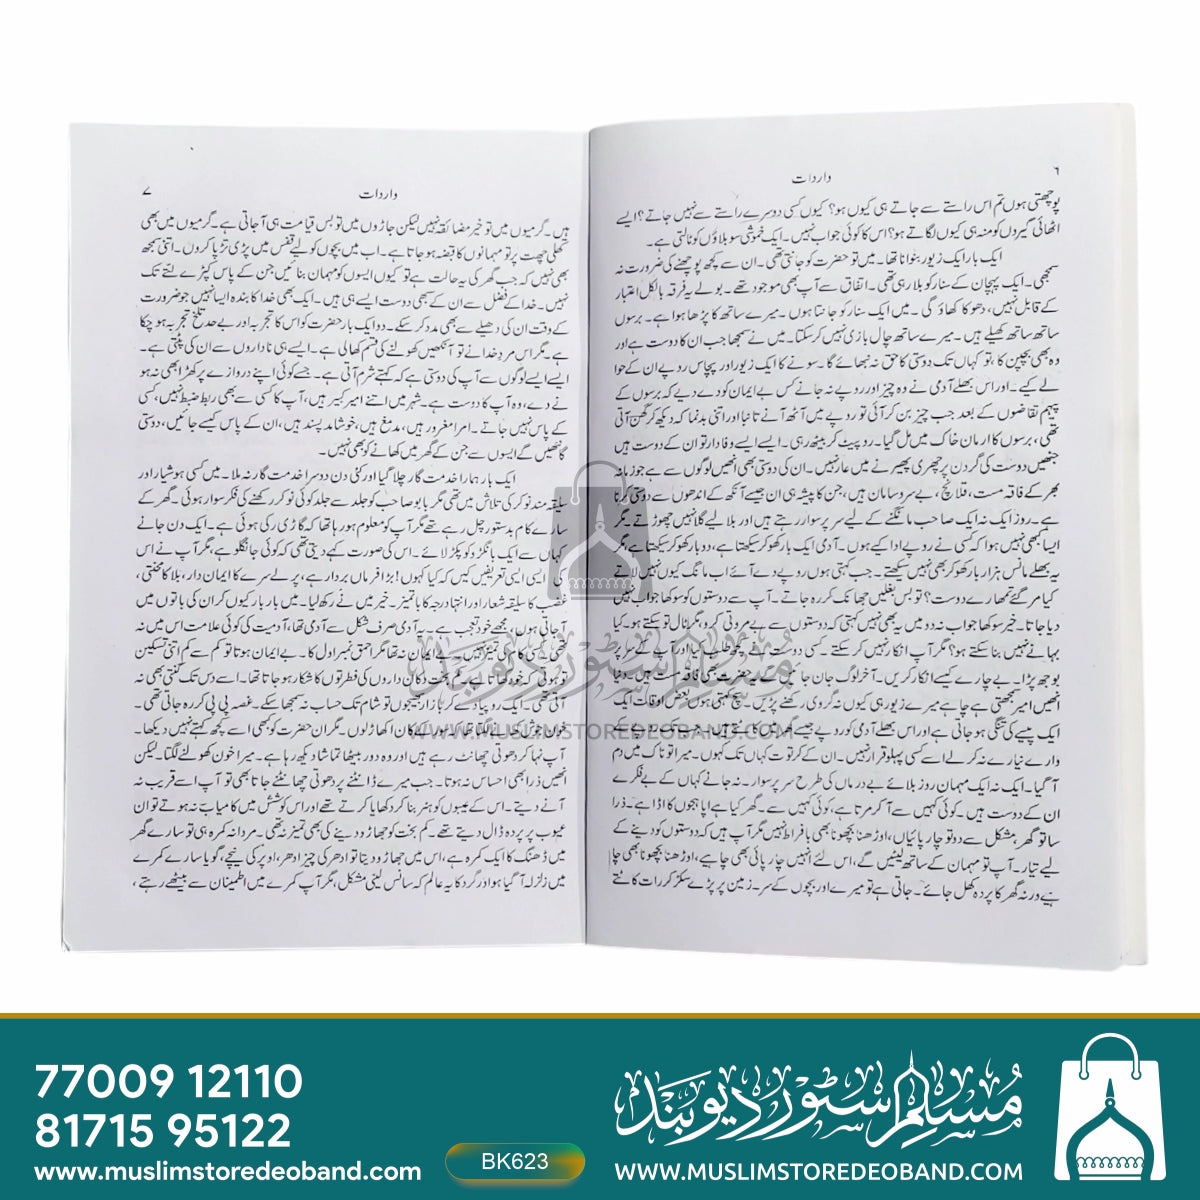 ۶
واردات
پوچھتی ہوں تم اس راستے سے جاتے ہی کیوں ہو؟ کیوں کسی دوسرے راستے سے نہیں جاتے؟ ایسے
اٹھائی گیروں کو منہ ہی کیوں لگاتے ہو؟ اس کا کوئی جواب نہیں۔ ایک خموشی سو بلاؤں کو ٹالتی ہے۔
ایک بار ایک زیور بنوانا تھا۔ میں تو حضرت کو جانتی تھی۔ ان سے کچھ پوچھنے کی ضرورت نہ
سمجھی۔ ایک پہچان کے سنار کو بلا رہی تھی۔ اتفاق سے آپ بھی موجود تھے۔ بولے یہ فرقہ بالکل اعتبار
کے قابل نہیں، دھوکا کھاؤ گی۔ میں ایک سنار کو جانتا ہوں۔ میرے ساتھ کا پڑھا ہوا ہے۔ برسوں
ساتھ ساتھ کھیلے ہیں۔ میرے ساتھ چال بازی نہیں کر سکتا۔ میں نے سمجھا جب ان کا دوست ہے اور
وہ بھی بچپن کا، تو کہاں تک دوستی کا حق نہ نبھائے گا۔ سونے کا ایک زیور اور پچاس روپے ان کے حوا
لے کیے۔ اور اس بھلے آدمی نے وہ چیز اور روپے نہ جانے کس بے ایمان کو دے دیے کہ برسوں کے
پیہم تقاضوں کے بعد جب چیز بن کر آئی تو روپے میں آٹھ آنے تانبا اور اتنی بدنما کہ دیکھ کر گھن آتی
تھی، برسوں کا ارمان خاک میں مل گیا۔ رو پیٹ کر بیٹھ رہی۔ ایسے ایسے وفادار تو ان کے دوست ہیں
جنھیں دوست کی گردن پر چھری پھیرنے میں عار نہیں۔ ان کی دوستی بھی انھیں لوگوں سے ہے جو زمانہ
بھر کے فاقہ مست، قلانچ، بے سروسامان ہیں، جن کا پیشہ ہی ان جیسے آنکھ کے اندھوں سے دوستی کرنا
ہے۔ روز ایک نہ ایک صاحب مانگنے کے لیے سر پر سوار رہتے ہیں اور بلا لیے گلا نہیں چھوڑتے۔ مگر
ایسا کبھی نہیں ہوا کہ کسی نے روپے ادا کیے ہوں۔ آدمی ایک بار کھو کر سیکھتا ہے، دو بار کھو کر سیکھتا ہے، مگر
یہ بھلے مانس ہزار بار کھو کر بھی نہیں سیکھتے۔ جب کہتی ہوں روپے دے آئے اب مانگ کیوں نہیں لاتے
کیا مر گئے تمھارے دوست؟ تو بس بغلیں جھانک کر رہ جاتے۔ آپ سے دوستوں کو سوکھا جواب نہیں
دیا جاتا۔ خیر سوکھا جواب نہ دو میں یہ بھی نہیں کہتی کہ دوستوں سے بے مروتی کرو، مگر ٹال تو سکتے ہو۔ کیا
بہانے نہیں بنا سکتے ہو؟ مگر آپ انکار نہیں کر سکتے۔ کسی دوست نے کچھ طلب کیا اور آپ کے سر پر
بوجھ پڑا۔ بے چارے کیسے انکار کریں۔ آخر لوگ جان جائیں گے یہ حضرت بھی فاقہ مست ہیں۔ دنیا
انھیں امیر سمجھتی ہے چاہے میرے زیور ہی کیوں نہ گروی رکھنے پڑیں۔ سچ کہتی ہوں بعض اوقات ایک
ایک پیسے کی تنگی ہو جاتی ہے اور اس بھلے آدمی کو روپے جیسے گھر میں کاٹتے ہیں۔ جب تک روپے کے
وارے نیارے نہ کر لے اسے کسی پہلو قرار نہیں۔ ان کے کرتوت کہاں تک کہوں۔ میرا تو ناک میں دم
آ گیا۔ ایک نہ ایک مہمان روز بلائے بے درماں کی طرح سر پر سوار۔ نہ جانے کہاں کے بے فکرے
ان کے دوست ہیں۔ کوئی کہیں سے آ کر مرتا ہے، کوئی کہیں سے۔ گھر کیا ہے اپاہجوں کا اڈا ہے۔ ذرا
سا تو گھر، مشکل سے دو تو چارپائیاں، اوڑھنا بچھونا بھی بافراط نہیں مگر آپ ہیں کہ دوستوں کو دینے کے
لیے تیار۔ آپ تو مہمان کے ساتھ لیٹیں گے، اس لئے انہیں چارپائی بھی چاہیے، اوڑھنا بچھونا بھی چاہیے
ہیے ورنہ گھر کا پردہ کھل جائے۔ جاتی ہے تو میرے اور بچوں کے سر۔ زمین پر پڑے سکڑ کر رات کاٹتے
۷
واردات
ہیں۔ گرمیوں میں تو خیر مضائقہ نہیں لیکن جاڑوں میں تو بس قیامت ہی آ جاتی ہے۔ گرمیوں میں بھی
کھلی چھت پر تو مہمانوں کا قبضہ ہو جاتا ہے۔ اب میں بچوں کو لیے قفس میں پڑی تڑپا کروں۔ اتنی سمجھ
بھی نہیں کہ جب گھر کی یہ حالت ہے تو کیوں ایسوں کو مہمان بنائیں جن کے پاس کپڑے لتے تک
نہیں۔ خدا کے فضل سے ان کے بھی دوست ایسے ہی ہیں۔ ایک بھی خدا کا بندہ ایسا نہیں جو ضرورت
کے وقت ان کی دھیلے سے بھی مدد کر سکے۔ دو ایک بار حضرت کو اس کا تجربہ اور بے حد تلخ تجربہ ہو چکا
ہے۔ مگر اس مرد خدا نے تو آنکھیں کھولنے کی قسم کھالی ہے۔ ایسے ہی ناداروں سے ان کی پٹتی ہے۔
ایسے ایسے لوگوں سے آپ کی دوستی ہے کہ کہتے شرم آتی ہے۔ جسے کوئی اپنے دروازے پر کھڑا بھی نہ ہو
نے دے، وہ آپ کا دوست ہے۔ شہر میں اتنے امیر کبیر ہیں، آپ کا کسی سے بھی ربط ضبط نہیں، کسی
کے پاس نہیں جاتے۔ امرا مغرور ہیں، مدمغ ہیں، خوشامد پسند ہیں، ان کے پاس کیسے جائیں، دوستی
گانٹھیں گے ایسوں سے جن کے گھر میں کھانے کو بھی نہیں۔
ایک بار ہمارا خدمت گار چلا گیا اور کئی دن دوسرا خدمت گار نہ ملا۔ میں کسی ہوشیار اور
سلیقہ مند نوکر کی تلاش میں تھی مگر بابو صاحب کو جلد سے جلد کوئی نوکر رکھنے کی فکر سوار ہوئی۔ گھر کے
سارے کام بدستور چل رہے تھے مگر آپ کو معلوم ہو رہا تھا کہ گاڑی رکی ہوئی ہے۔ ایک دن جانے
کہاں سے ایک بانگڑو کو پکڑ لائے۔ اس کی صورت کہے دیتی تھی کہ کوئی جانگلو ہے، مگر آپ نے اس
کی ایسی ایسی تعریفیں کیں کہ کیا کہوں! بڑا فرماں بردار ہے، پرلے سرے کا ایمان دار، بلا کا محنتی،
غضب کا سلیقہ شعار اور انتہا درجہ کا باتمیز۔ خیر میں نے رکھ لیا۔ میں بار بار کیوں کر ان کی باتوں میں
آ جاتی ہوں، مجھے خود تعجب ہے۔ یہ آدمی صرف شکل سے آدمی تھا، آدمیت کی کوئی علامت اس میں نہ
تھی۔ کسی کام کی تمیز نہیں۔ بے ایمان نہ تھا مگر احمق نمبر اول کا۔ بے ایمان ہوتا تو کم سے کم اتنی تسکین
تو ہوتی کہ خود کھاتا ہے۔ کم بخت دکان داروں کی فطرتوں کا شکار ہو جاتا تھا۔ اسے دس تک گنتی بھی نہ
آتی تھی۔ ایک روپیہ دے کر بازار بھیجوں تو شام تک حساب نہ سمجھا سکے۔ غصہ پی پی کر رہ جاتی تھی۔
خون جوش کھانے لگتا تھا کہ سور کے کان اکھاڑ لوں۔ مگر ان حضرت کو کبھی اسے کچھ کہتے نہیں دیکھا۔
آپ نہا کر دھوتی چھانٹ رہے ہیں اور وہ دور بیٹھا تماشا دیکھ رہا ہے۔ میرا خون کھولنے لگتا۔ لیکن
انھیں ذرا بھی احساس نہ ہوتا۔ جب میرے ڈانٹنے پر دھوتی چھانٹنے جاتا بھی تو آپ اسے قریب نہ
آنے دیتے۔ اس کے عیبوں کو ہنر بنا کر دکھایا کرتے تھے اور اس کوشش میں کامیاب نہ ہوتے تو ان
عیوب پر پردہ ڈال دیتے تھے۔ کم بخت کو جھاڑو دینے کی بھی تمیز نہ تھی۔ مردانہ کمرہ ہی تو سارے گھر
میں ڈھنگ کا ایک کمرہ ہے، اس میں جھاڑو دیتا تو ادھر کی چیز ادھر، اوپر کی نیچے، گویا سارے کمرے
میں زلزلہ آ گیا ہو اور گرد کا یہ عالم کہ سانس لینی مشکل، مگر آپ کمرے میں اطمینان سے بیٹھے رہتے،
مسلم سٹور دیوبند
WWW.MUSLIMSTOREDEOBAND.COM
77009 12110
81715 95122
www.muslimstoredeoband.com
BK623
مسلم سٹور دیوبند
WWW.MUSLIMSTOREDEOBAND.COM